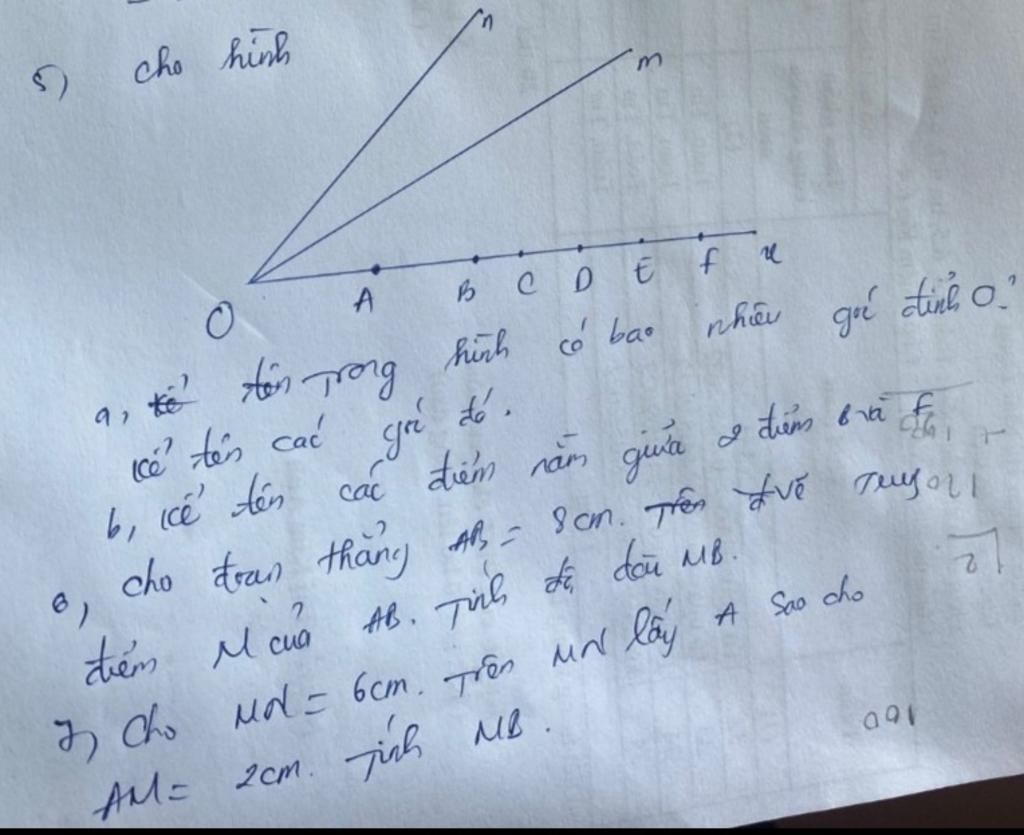 5) cho hình
n
m
O A B C D E F x
a, tên trong hình có bao nhiêu góc đỉnh O?
Kể tên các góc đó.
b, Kể tên các điểm nằm giữa 2 điểm B và F
6, cho đoạn thẳng AB = 8cm. Trên vẽ trung
điểm M của AB. Tính độ dài MB.
7, Cho MN = 6cm. Trên MN lấy A sao cho
AM = 2cm. Tính MB.